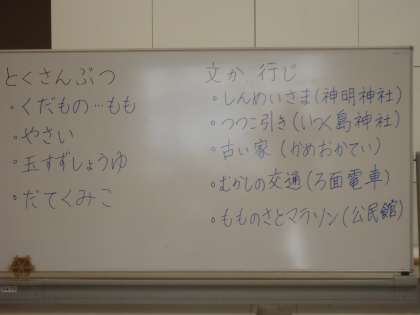 とくさんぶつ
・くだもの…もも
・やさい
・玉すずしょうゆ
・だてくみこ
文か 行じ
・しんめいさま(神明神社)
・つつこ引き(いつく島神社)
・古い家(かめおかてい)
・むかしの交通(ろ面電車)
・もものさとマラソン(公民館)